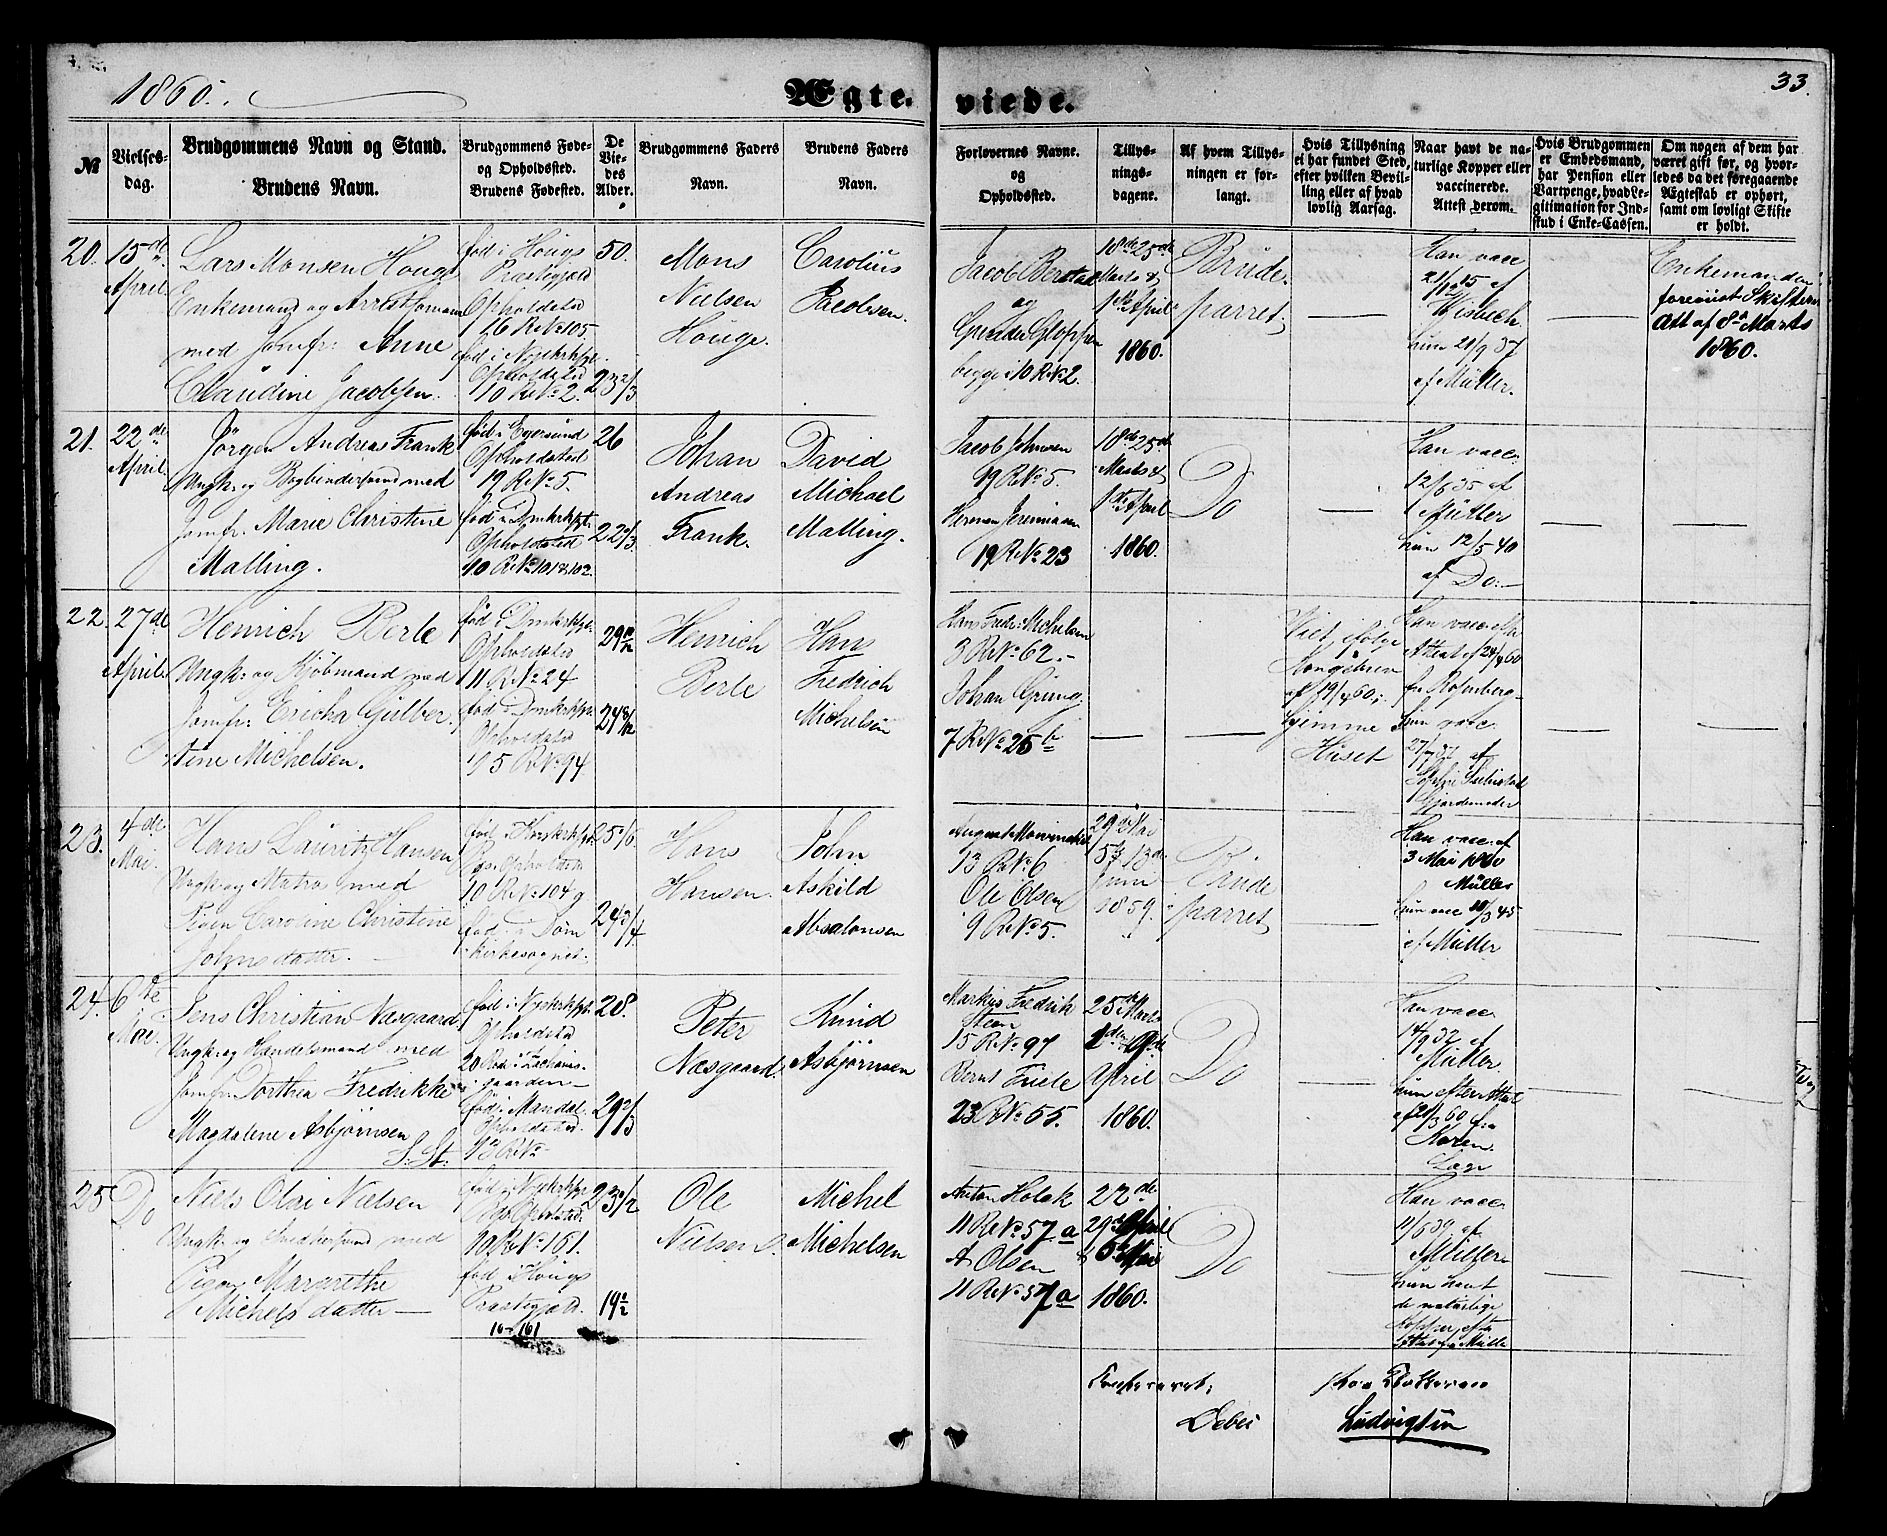 1860.
Ægte.
viede.
33.
№
Vielses-
dag.
Brudgommens Navn og Stand.
Brudens Navn.
Brudgommens Føde-
og Opholdssted.
Brudens Fødested.
De
Vie-
des
Alder.
Brudgommens Faders
Navn.
Brudens Faders
Navn.
Forlovernes Navne.
og
Opholdssted.
Tillys-
nings-
dagene.
Af hvem Tillys-
ningen er for-
langt.
Hvis Tillysning
ei har fundet Sted,
efter hvilken Bevil-
ling eller af hvad
lovlig Aarsag.
Naar havt de na-
turlige Kopper eller
vaccinerede.
Attest derom.
Hvis Brudgommen
er Embedsmand,
har Pension eller
Vartpenge, hvad Le-
gitimation for Ind-
skud i Enke-Cassen.
Om nogen af dem har
været gift før, og hvor-
ledes da det foregaaende
Ægteskab er ophørt,
samt om lovligt Skifte
er holdt.
20.
15de
April.
Lars Monsen Houge
Enkemand og
med Jomfr: Anne
Claudine Jacobsen.
fød i Hougs
Præstegjeld
Opholdssted
16 R. No 105.
Opholdssted
10 R. No 2.
50.
23 2/3
Mons
Nielsen
Houge.
Carolius
Jacobsen.
Jacob Berstad
og
begge i 10 R. No 2.
18de 25de
Marts &
1ste April
1860.
Brude-
parret
Han vacc
21/12 15 af
Wisbech
hun 21/9 37
af Müller.
Enkemanden
forevist Skifters
Att af 8de Marts
1860.
21.
22de
April.
Jörgen Andreas Frank
Ungk: og Bogbindersvend med
Jomfr. Marie Christine
Malling.
fød i Egersund
Opholdssted
19 R. No 5.
Opholdssted
10 R. No 101 & 102.
26
22 2/3.
Johan
Andreas
Frank.
David
Michael
Malling.
Jacob Johnsen
19 R. No 5.
Herman
19 R. No 23
18de 25de
Marts &
1ste April
1860.
Do
Han vacc.
12/6 35 af
Müller
hun 12/5 40
af Do.
22.
27de
April.
Henrich Berle
Ungk: og Kjøbmand med
Jomfr: Ericha Gulber-
tine Michelsen.
Opholdssted
11 R. No 24
Opholdssted
R. No 94
Henrich
Berle
Hans
Fredrich
Michelsen
Hans Fredr: Michelsen
3 R. No 62.
Johan Grung
7 R. No 25 b
Viet ifølge
Kongebrev
af 19/4 60
hjemme i
Huset
Attest af 24/4 60
fra Rosenberg
hun vacc.
af
Gjordemoder
23.
4de
Mai.
Hans Lauritz Hansen
Ungk: og Matros med
Pigen Caroline Christine
Johnsdatter.
10 R. No 104 g
fød i Dom-
kirkesognet.
25 1/6
24 3/4
Hans
Hansen.
John
Askild
Absalonsen
August
13 R. No 6
Ole Olsen
9 R. No 5.
29de Mai
5te & 13de
Juni
1859.
Brude
parret
Han vacc. af
3 Mai 1860
Müller
hun vacc 10/3 45
af Müller
24.
6te
Mai.
Jens Christian Næsgaard
Ungk: og Handelsmand med
Jomfr. Dorthea Fredrikke
Magdalene Asbjørnsen
S: St:
Opholdssted
20 Rode i Zacharias-
gaarden
fød i Mandal
Opholdssted.
28.
29 2/3
Peter
Næsgaard.
Knud
Asbjørnsen
Markus Fredrik
Steen
15 R. No 97
Bernt Friele
23 R. No 55.
25de Marts
1ste 9de
April
1860.
Do
Han vacc.
14/9 32 af
Müller
hun efter Attest
af 21/3 60 fra
Karen
25
Do
Niels Olai Nielsen
Ungk: og Snedkersvend med
Pigen Margrethe
Michelsdatter
10 R. No 161.
fød i Hougs
Præstegjeld.
16 - 161
23 1/2
19 1/2
Ole
Nielsen.
Michel
Michelsen
Anton Holck
11 R. No 57 a
A Olsen
11 R. No 57 a
22de
29de April
& 6te Mai
1860.
Do
Han vacc.
11/6 39 af
Müller
hun havt
de naturlige
Kopper, efter
Attest fra Müller
Debes
Ludvigsen